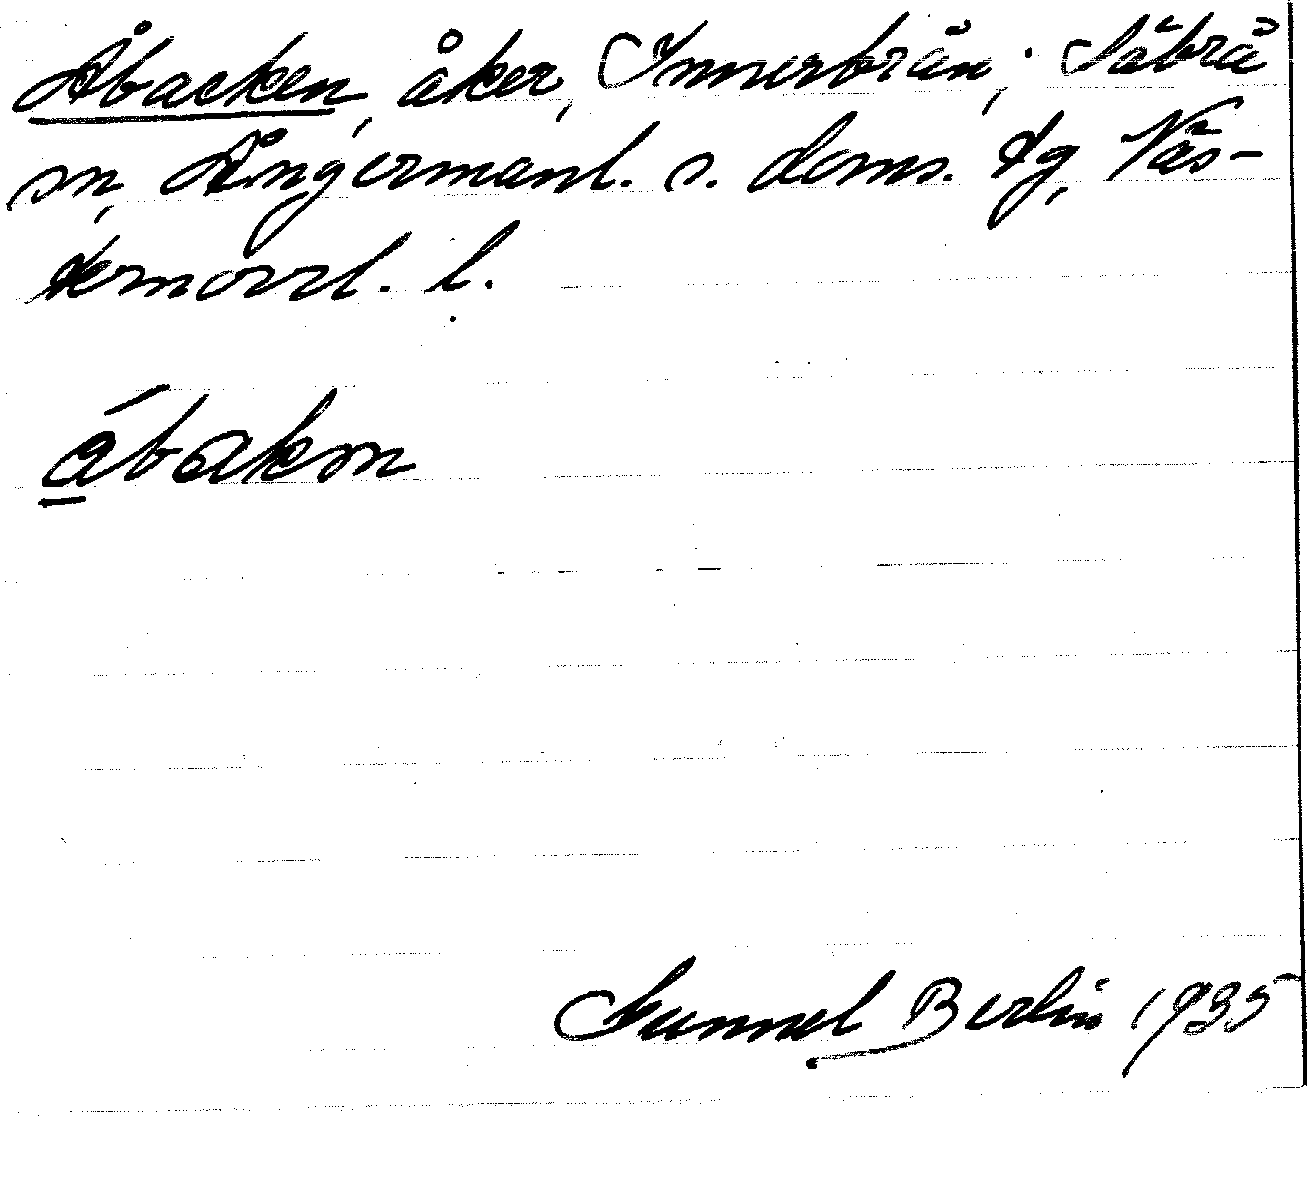 Åbacken, åker, Innerbrän, Säbrå
sn, Ångermanl. s. doms. tg, Väs-
ternorrl. l.
åbakm
Gunnel Berlin 1935